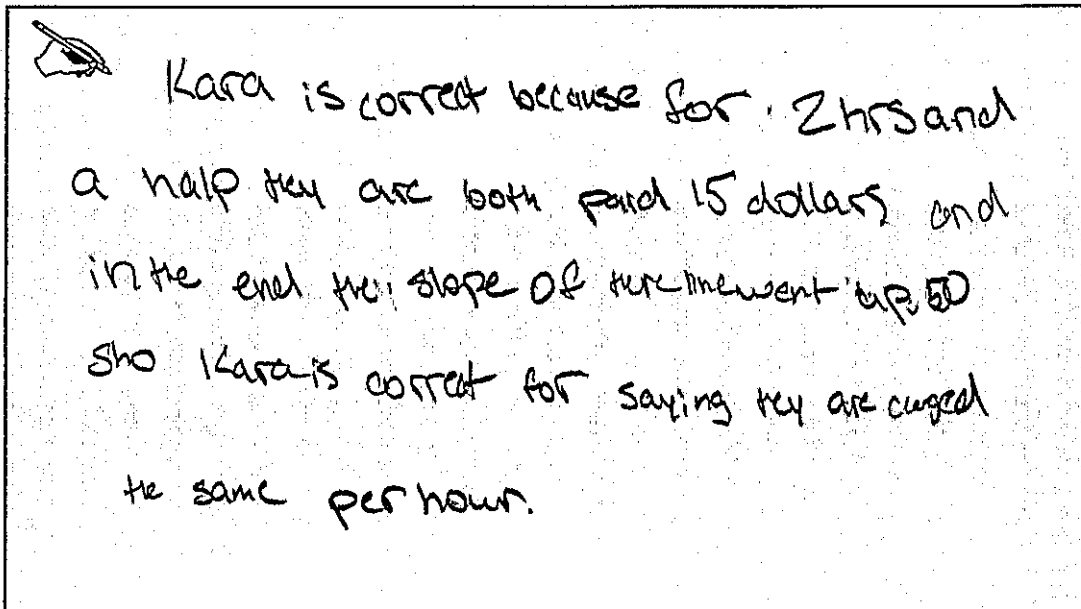 Kara is correct because for 2 hrs and
a half they are both paid 15 dollars and
in the end the slope of there line went up 50
sho Kara is correct for saying they are
the same per hour.